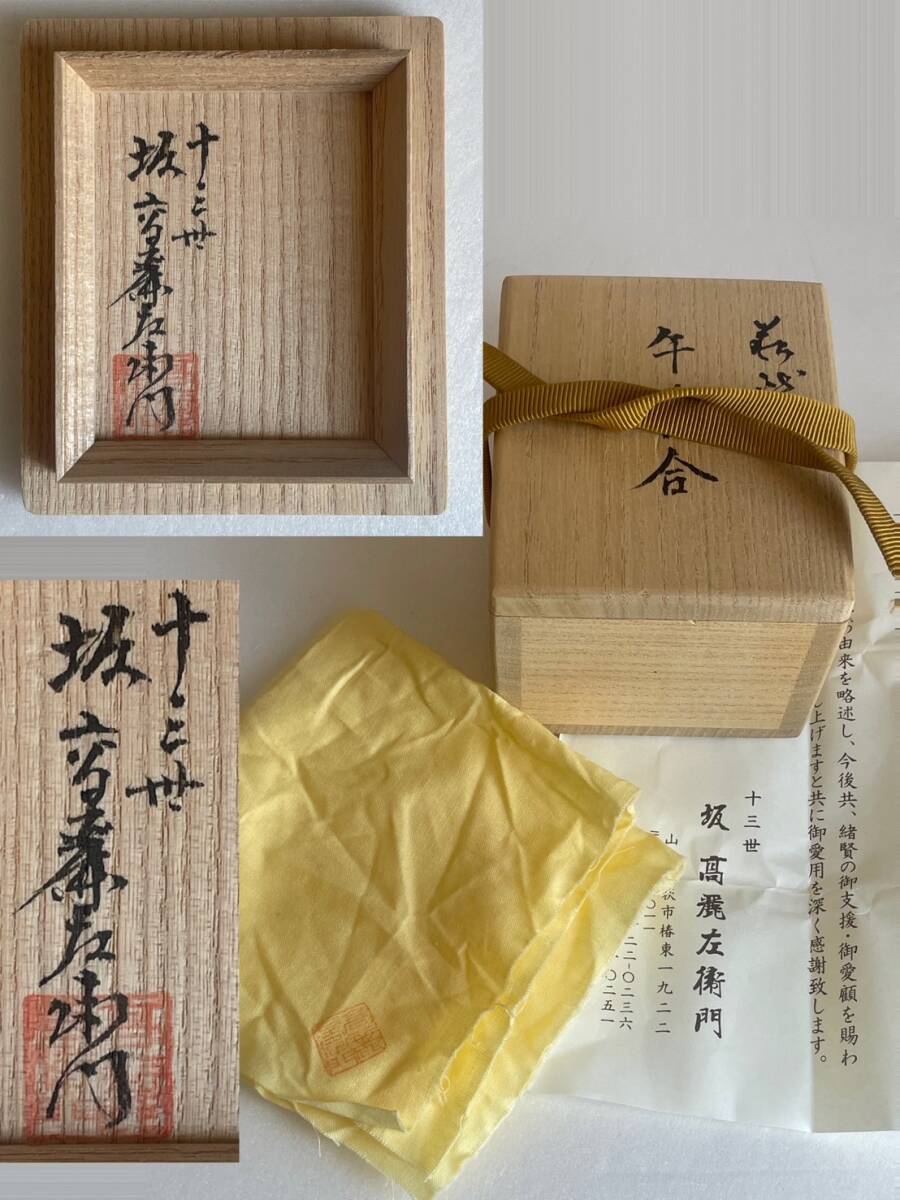 十三世
坂高麗左衛門
萩焼
午香合
十三世
坂高麗左衛門
の由来を略述し、今後共、緒賢の御支援・御愛顧を賜わ
し上げますと共に御愛用を深く感謝致します。
十三世
坂高麗左衛門
山
萩市椿東一九二二
二二-〇二三六
〇二五一